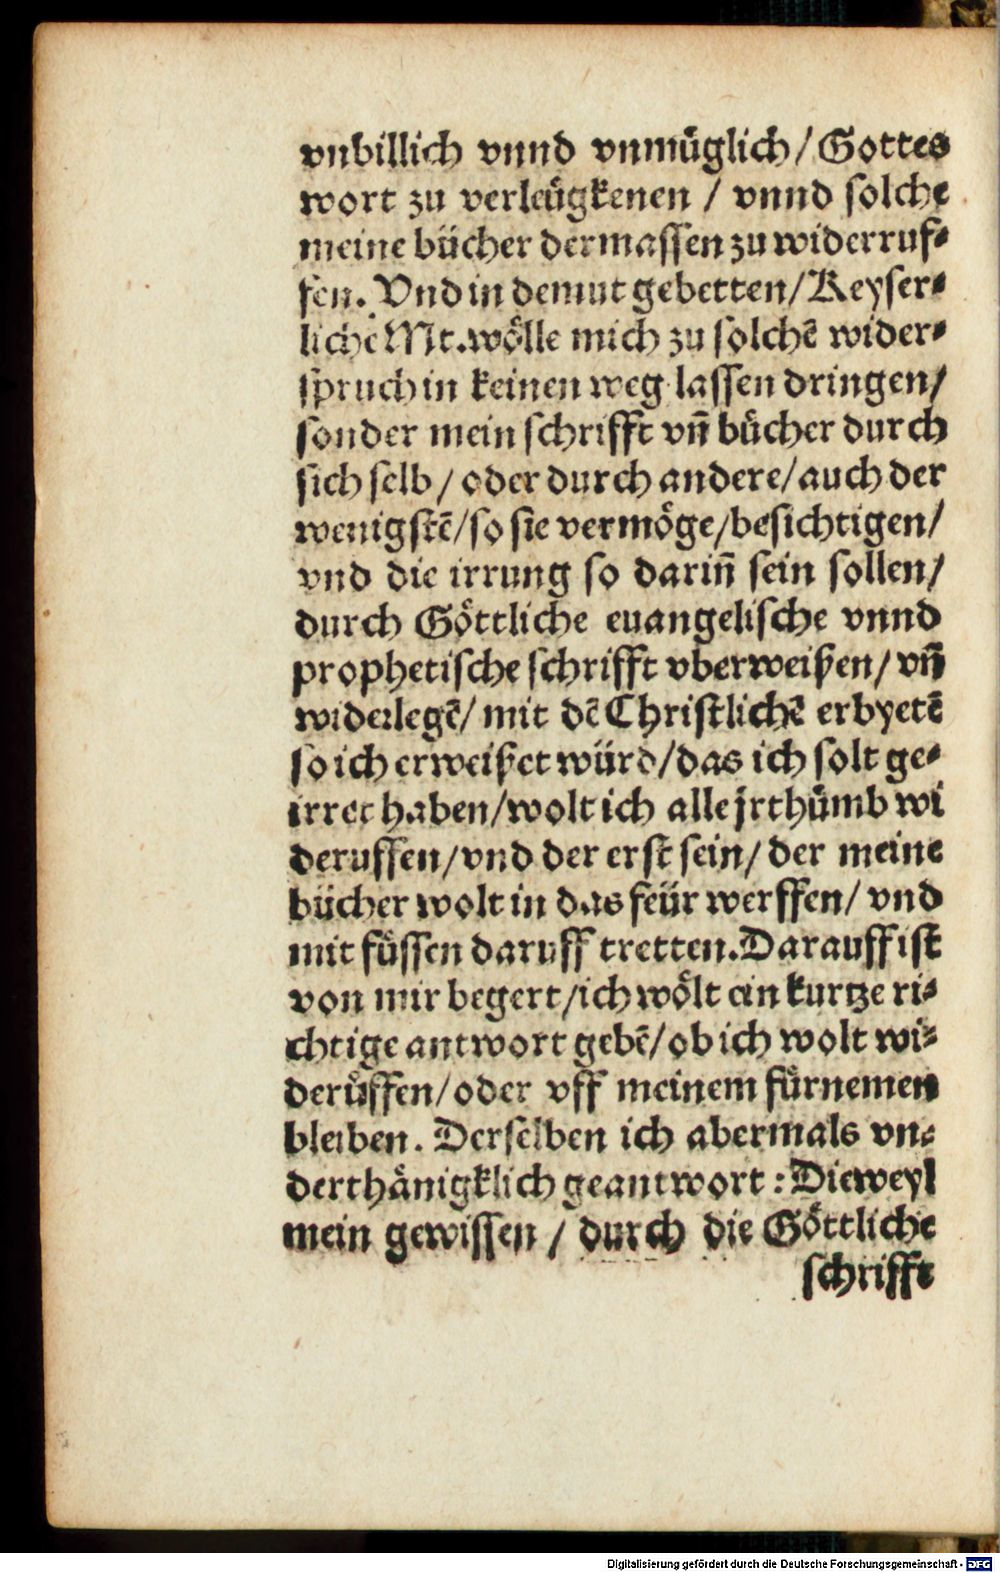 vnbillich vnnd vnmüglich/ Gottes
wort zu verleügkenen / vnnd solche
meine bücher dermassen zu widerruf⸗
fen. Vnd in demut gebetten/ Keyser⸗
liche Mt. wölle mich zu solchē wider⸗
spruch in keinen weg lassen dringen/
sonder mein schrifft vn̄ bücher durch
sich selb / oder durch andere/ auch der
wenigstē/ so sie vermöge/ besichtigen/
vnd die irrung so darin̄ sein sollen/
durch Göttliche euangelische vnnd
prophetische schrifft vberweißen/ vn̄
widerlegē/ mit dē Christlichē erbyetē
so ich erweißet würd/ das ich solt ge⸗
irret haben/ wolt ich alle jrthümb wi
deruffen/ vnd der erst sein/ der meine
bücher wolt in das feür werffen/ vnd
mit füssen daruff tretten. Darauff ist
von mir begert/ ich wölt ein kurtze ri⸗
chtige antwort gebē/ ob ich wolt wi⸗
derüffen/ oder vff meinem fürnemen
bleiben. Derselben ich abermals vn⸗
derthänigklich geantwort : Dieweyl
mein gewissen / durch die Göttliche
schrifft
Digitalisierung gefördert durch die Deutsche Forschungsgemeinschaft - DFG